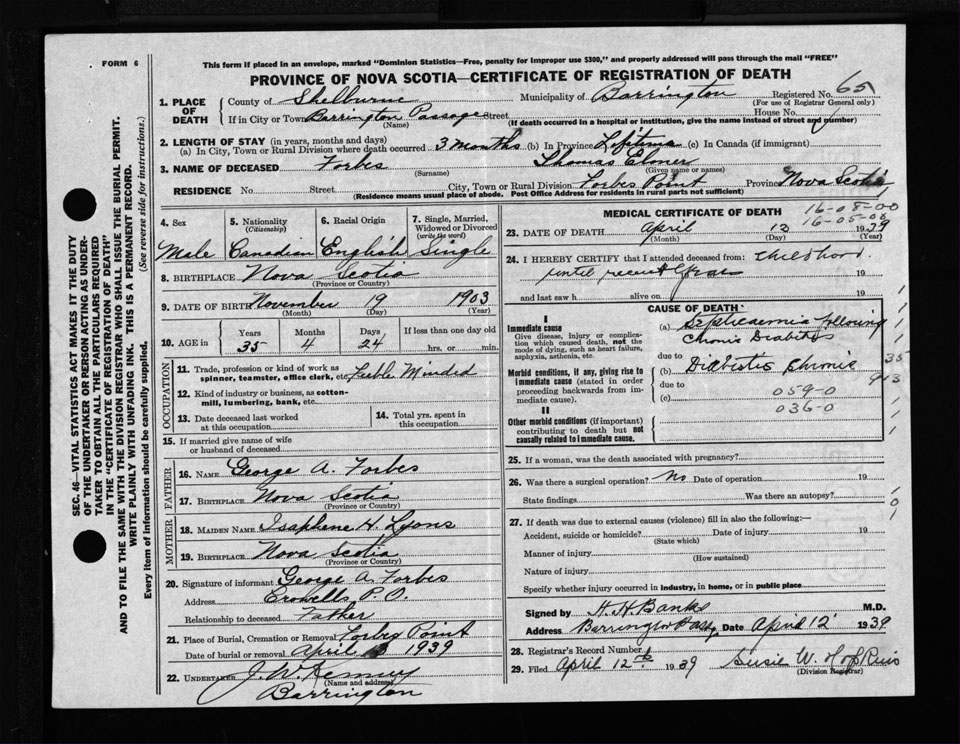 FORM 6
This form if placed in an envelope, marked "Dominion Statistics—Free, penalty for improper use $300," and properly addressed will pass through the mail "FREE"
PROVINCE OF NOVA SCOTIA—CERTIFICATE OF REGISTRATION OF DEATH
1. PLACE OF DEATH County of Shelburne Municipality of Barrington Registered No. 65
(For use of Registrar General only)
If in City or Town Barrington Passage Street House No.
(Name) (If death occurred in a hospital or institution, give the name instead of street and number)
2. LENGTH OF STAY (in years, months and days)
(a) In City, Town or Rural Division where death occurred 3 months (b) In Province Lifetime (c) In Canada (if immigrant)
3. NAME OF DECEASED Forbes Thomas Elmer
(Surname) (Given name or names)
RESIDENCE No. Street City, Town or Rural Division Forbes Point Province Nova Scotia
(Residence means usual place of abode. Post Office Address for residents in rural parts not sufficient)
4. Sex 5. Nationality (Citizenship) 6. Racial Origin 7. Single, Married, Widowed or Divorced (write the word)
Male Canadian English Single
8. BIRTHPLACE Nova Scotia
(Province or Country)
9. DATE OF BIRTH November 19 1903
(Month) (Day) (Year)
10. AGE in Years Months Days If less than one day old
35 4 24 hrs. or min.
OCCUPATION
11. Trade, profession or kind of work as spinner, teamster, office clerk, etc. Feeble Minded
12. Kind of industry or business, as cotton-mill, lumbering, bank, etc.
13. Date deceased last worked at this occupation
14. Total yrs. spent in this occupation
15. If married give name of wife or husband of deceased
FATHER
16. NAME George A. Forbes
17. BIRTHPLACE Nova Scotia
(Province or Country)
MOTHER
18. MAIDEN NAME Isaphene H. Lyons
19. BIRTHPLACE Nova Scotia
(Province or Country)
20. Signature of informant George A. Forbes
Address Crowells P.O.
Relationship to deceased Father
21. Place of Burial, Cremation or Removal Forbes Point
Date of burial or removal April 1939
22. UNDERTAKER J. W. Kenney
(Name and address)
Barrington
MEDICAL CERTIFICATE OF DEATH
16-08-00
16-05-08
23. DATE OF DEATH April 12 1939
(Month) (Day) (Year)
24. I HEREBY CERTIFY that I attended deceased from: Childhood
until recent years 19
and last saw h alive on 19
CAUSE OF DEATH
I
Immediate cause
Give disease, injury or complication which caused death, not the mode of dying, such as heart failure, asphyxia, asthenia, etc.
(a) Septicaemia following
Chronic Diabetes
due to
Morbid conditions, if any, giving rise to immediate cause (stated in order proceeding backwards from immediate cause).
(b) Diabetes chronic
due to
(c) 059-0
036-0
II
Other morbid conditions (if important) contributing to death but not causally related to immediate cause.
25. If a woman, was the death associated with pregnancy?
26. Was there a surgical operation? No Date of operation 19
State findings Was there an autopsy?
27. If death was due to external causes (violence) fill in also the following:—
Accident, suicide or homicide? Date of injury 19
(State which)
Manner of injury
(How sustained)
Nature of injury
Specify whether injury occurred in industry, in home, or in public place
Signed by H. H. Banks M.D.
Address Barrington Passg. Date April 12 1939
28. Registrar's Record Number
29. Filed April 12th 1939 Susie W.
(Division Registrar)
SEC. 46—VITAL STATISTICS ACT MAKES IT THE DUTY
OF THE UNDERTAKER OR PERSON ACTING AS UNDERTAKER TO OBTAIN ALL THE PARTICULARS REQUIRED
IN THE "CERTIFICATE OF REGISTRATION OF DEATH"
AND TO FILE THE SAME WITH THE DIVISION REGISTRAR WHO SHALL ISSUE THE BURIAL PERMIT.
WRITE PLAINLY WITH UNFADING INK. THIS IS A PERMANENT RECORD.
Every item of information should be carefully supplied. (See reverse side for instructions.)